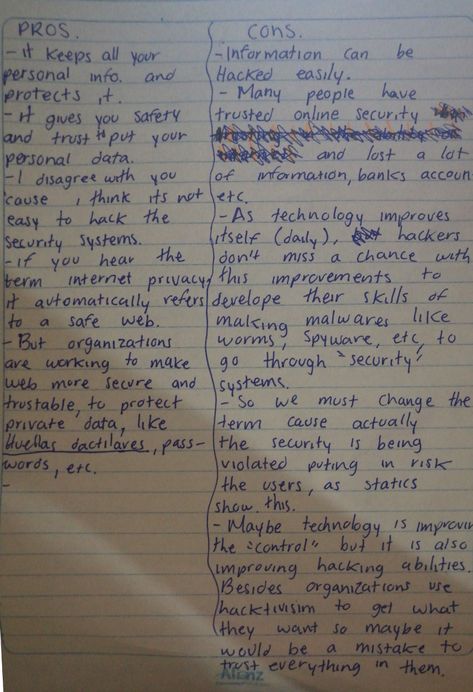 PROS.
- it keeps all your
personal info. and
protects it.
- it gives you safety
and trust to put your
personal data.
- I disagree with you
cause, i think its not
easy to hack the
security systems.
- if you hear the
term internet privacy,
it automatically refers
to a safe web.
- But organizations
are working to make
web more secure and
trustable, to protect
private data, like
Huellas dactilares, pass-
words, etc.
-
CONS.
- Information can be
Hacked easily.
- Many people have
trusted online security
and lost a lot
of information, banks accoun
etc.
- As technology improves
itself (daily), hackers
don't miss a chance with
this improvements to
develope their skills of
making malwares like
worms, spyware, etc, to
go through "security"
systems.
- So we must change the
term cause actually
the security is being
violated puting in risk
the users, as statics
show this.
- Maybe technology is improvin
the "control" but it is also
improving hacking abilities.
Besides organizations use
hacktivisim to get what
they want so maybe it
would be a mistake to
trust everything in them.